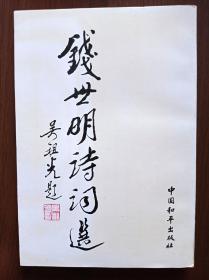 錢世明诗词选
吴祖光题
中国和平出版社